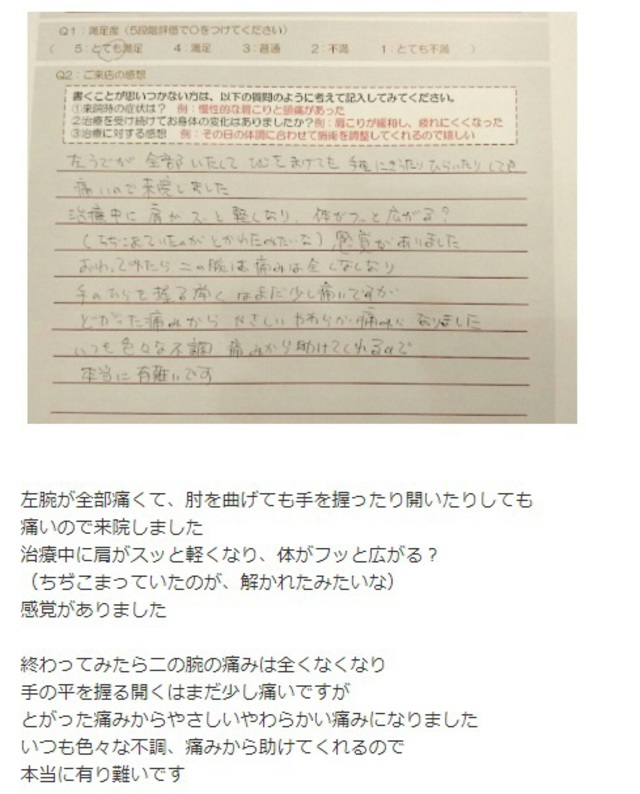 Q1：満足度（5段階評価で〇をつけてください）
（　5：とても満足　4：満足　3：普通　2：不満　1：とても不満　）
Q2：ご来店の感想
書くことが思いつかない方は、以下の質問のように考えて記入してみてください。
①来院時の症状は？　例：慢性的な肩こりと頭痛があった
②治療を受け続けてお身体の変化はありましたか？例：肩こりが緩和し、疲れにくくなった
③治療に対する感想　例：その日の体調に合わせて施術を調整してくれるので嬉しい
左うでが 全部 いたくて ひじをまげても 手をにぎったり ひらいたりしても
痛いので来院しました
治療中に 肩がスッと軽くなり、体がフッと広がる？
（ちぢこまっていたのが とかれたみたいな）感覚がありました
おわってみたら 二の腕は痛みは全くなくなり
手のひらを握る開くはまだ少し痛いですが
とがった痛みから やさしい やわらかい痛みになりました
いつも色々な不調 痛みから助けてくれるので
本当に有難いです
左腕が全部痛くて、肘を曲げても手を握ったり開いたりしても
痛いので来院しました
治療中に肩がスッと軽くなり、体がフッと広がる？
（ちぢこまっていたのが、解かれたみたいな）
感覚がありました
終わってみたら二の腕の痛みは全くなくなり
手の平を握る開くはまだ少し痛いですが
とがった痛みからやさしいやわらかい痛みになりました
いつも色々な不調、痛みから助けてくれるので
本当に有り難いです